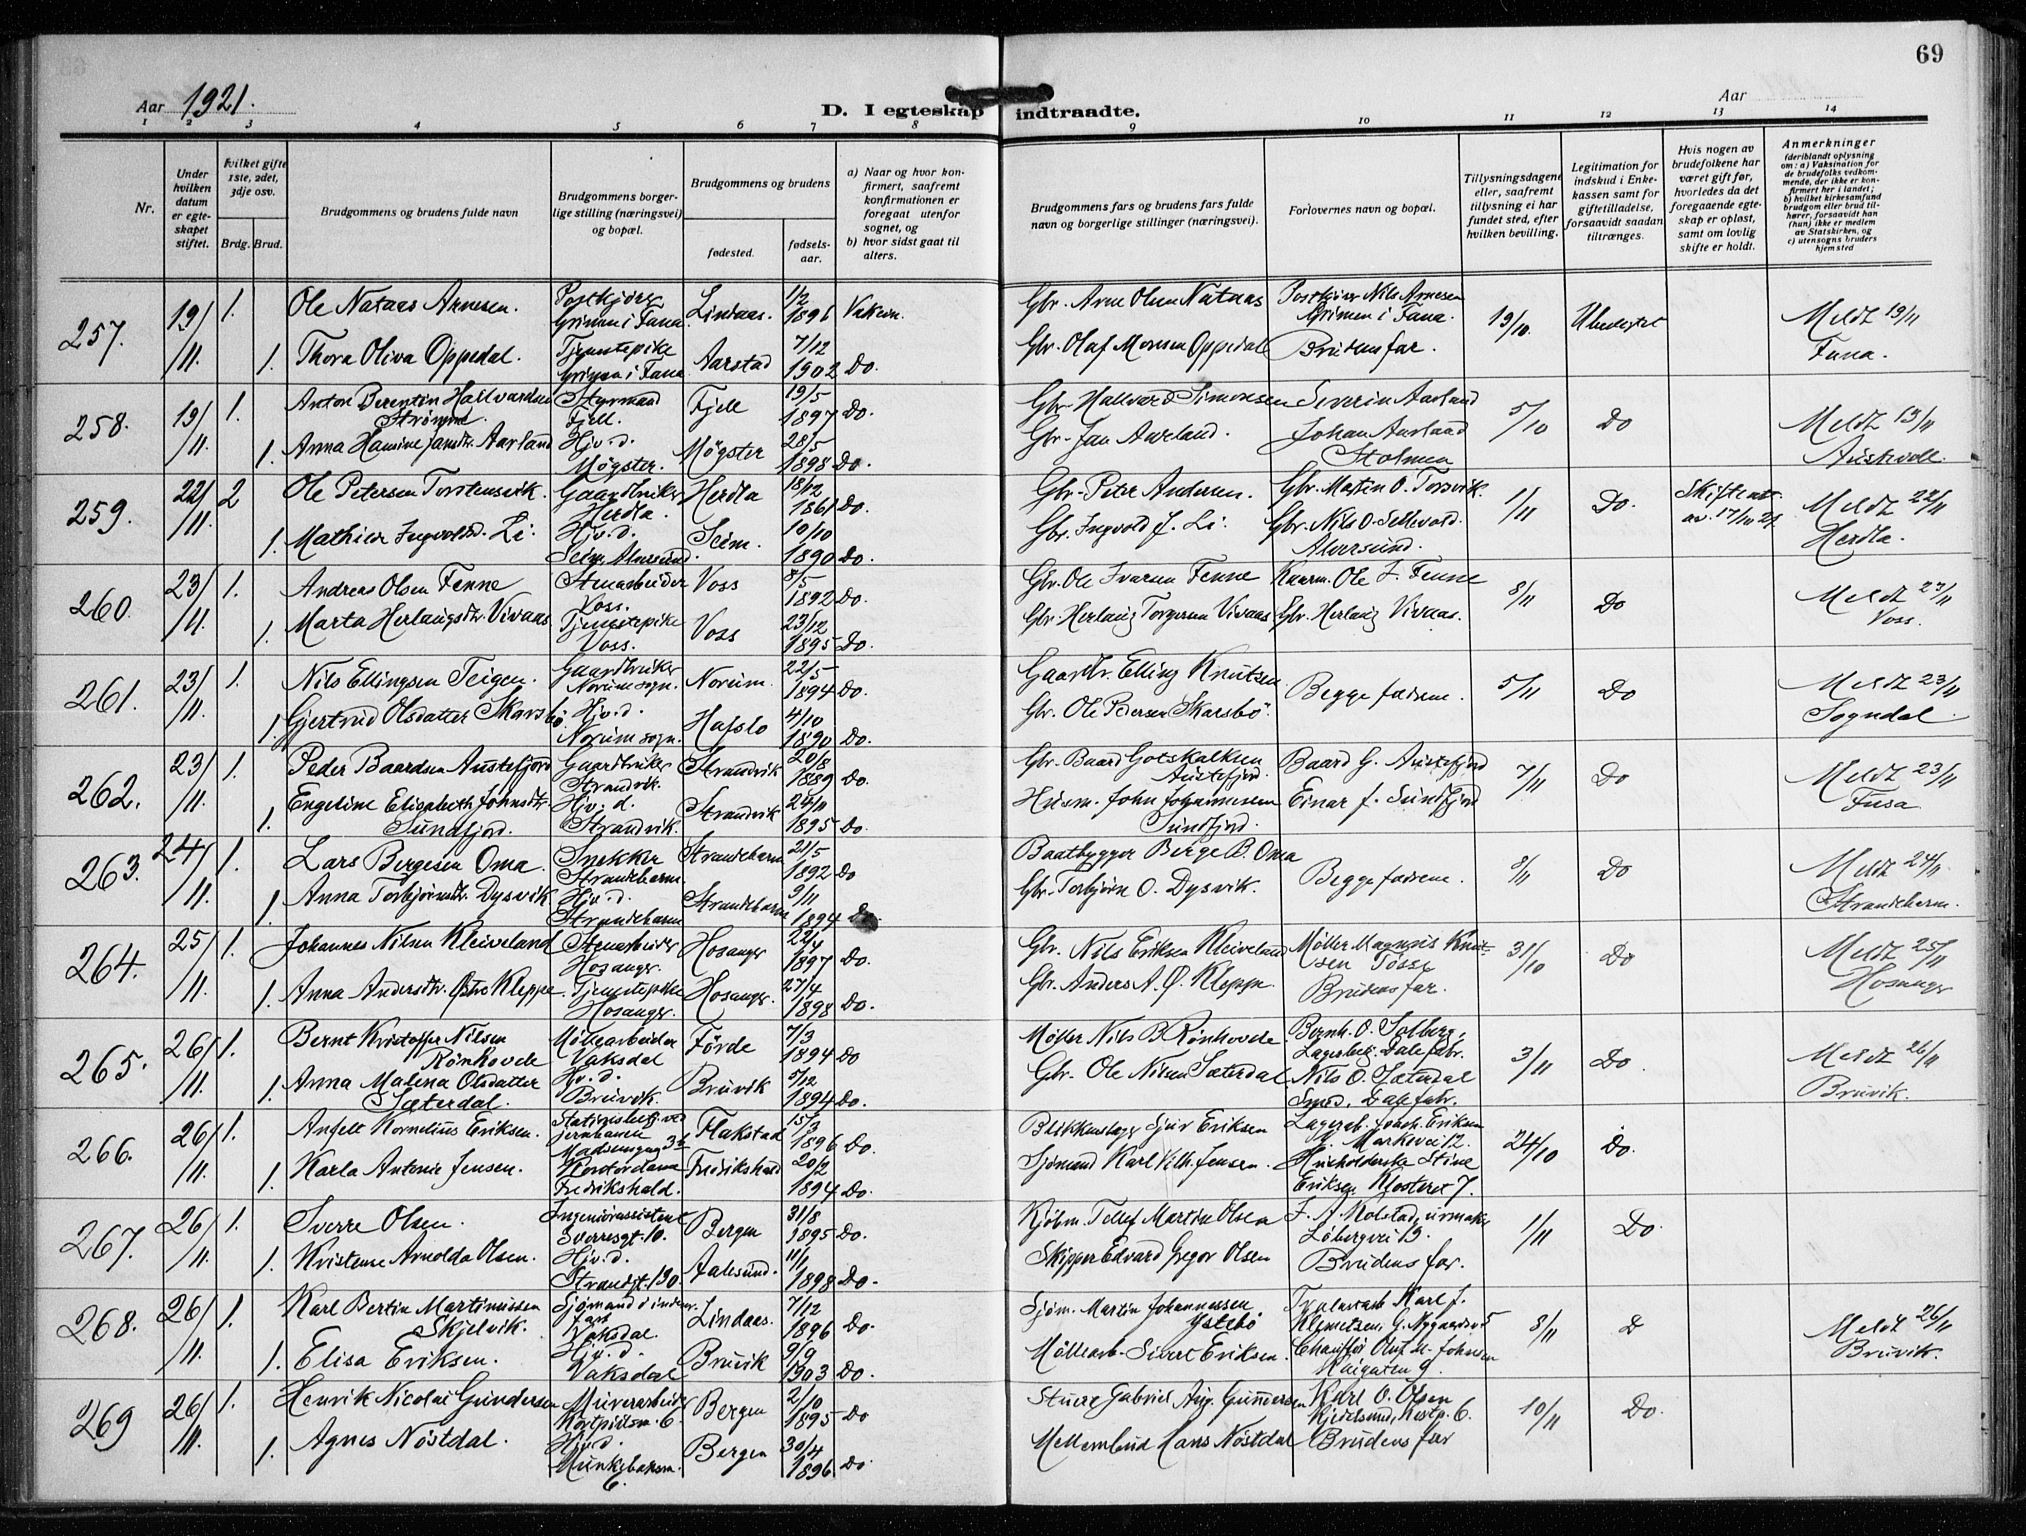 69
Aar 1921.
D. I egteskap indtraadte.
Aar
1 2 3 4 5 6 7 8 9 10 11 12 13 14
Nr.
Under hvilken datum er egteskapet stiftet.
Hvilket gifte 1ste, 2det, 3dje osv.
Brdg. Brud.
Brudgommens og brudens fulde navn
Brudgommens borgerlige stilling (næringsvei) og bopæl.
Brudgommens og brudens
fødested.
fødselsaar.
a) Naar og hvor konfirmert, saafremt konfirmationen er foregaat utenfor sognet, og
b) hvor sidst gaat til alters.
Brudgommens fars og brudens fars fulde navn og borgerlige stillinger (næringsvei).
Forlovernes navn og bopæl.
Tillysningsdagene eller, saafremt tillysning ei har fundet sted, efter hvilken bevilling.
Legitimation for indskud i Enkekassen samt for giftetilladelse, forsaavidt saadan tiltrænges.
Hvis nogen av brudefolkene har været gift før, hvorledes da det foregaaende egteskap er opløst, samt om lovlig skifte er holdt.
Anmerkninger
(deriblandt oplysning om: a) Vaksination for de brudefolks vedkommende, der ikke er konfirmert her i landet; b) hvilket kirkesamfund brudgom eller brud tilhører, forsaavidt han (hun) ikke er medlem av Statskirken, og c) utensogns bruders hjemsted
257. 19/11. 1. Ole Nataas Arnesen. Grimen i Fana. Lindaas. 1/2 1896 Gbr. Arne Olsen Nataas Nils Arnesen Grimen i Fana. 19/10. Ubedegtet Meldt 19/11 Fana.
1. Thora Oliva Oppedal. Tjenestepike Grimen i Fana Aarstad 7/12 1902 Do. Gbr. Olaf Monsen Oppedal Brudens far.
258. 19/11. 1. Anton Berentin Hallvardsen Strömme. Styrmand Fjell. Fjell 19/5 1897 Do. Gbr. Hallvard Simonsen Severin Aarland 5/10 Do Meldt 19/11 Austevoll.
1. Anna Hansine Jansdtr. Aarland Hjv. d. Møgster. Møgster 28/5 1898 Do. Gbr. Jan Aareland. Johan Aarland Stolmen
259. 22/11. 2 Ole Petersen Torstensvik. Gaardbruker Herdla. Herdla 18/12 1861 Do. Gbr. Peter Andersen. Gbr. Martin O. Torsvik. 1/11 Do. Skifteatt. av. 17/10 21 Meldt 22/11 Herdla.
1. Mathea Ingvoldsd. Li. Hjv. d. Seim. 10/10 1890 Do. Gbr. Ingvold J. Li. Gbr. Nils O. Sellevold. Alversund.
260. 23/11. 1. Andreas Olsen Fenne Stenarbeider Voss. Voss 8/5 1892 Do. Gbr. Ole Ivarsen Fenne Ole I. Fenne 8/11 Do Meldt 23/11 Voss.
1. Marta Herlaugsdtr. Vivaas Tjenestepike Voss. Voss 23/12 1895 Do. Gbr. Herlaug Torgersen Vivaas Gbr. Herlaug Vivaas.
261. 23/11. 1. Nils Ellingsen Teigen. Gaardbruker Norum sogn. Norum. 22/5 1894 Do. Gaardbr. Elling Knutsen Begge fædrene. 5/11 Do Meldt 23/11 Sogndal.
1. Gjertrud Olsdatter Skarsbö Hjv. d. Norum sogn. Hafslo 4/10 1890 Do. Gbr. Ole Pedersen Skarsbö.
262. 23/11. 1. Peder Baardsen Austefjord Gaardbruker Strandvik. Strandvik 20/8 1889 Do. Gbr. Baard Gotskalksen Austefjord. Baard G. Austefjord 7/11 Do Meldt 23/11 Fusa
1. Engeline Elisabeth Johnsdtr. Sundfjord. Hjv. d. Strandvik. Strandvik 24/11 1895 Do. Husm. John Johannessen Sundfjord. Einar J. Sundfjord
263. 24/11. 1. Lars Bergesen Oma. Snekker Strandebarm. Strandebarm 21/5 1892 Do Baatbygger Berge B. Oma Begge fædrene. 8/11 Do Meldt 24/11 Strandebarm.
1. Anna Torbjörnsdtr. Dysvik Hjv. d. Strandebarm Strandebarm 9/11 1894 Do. Gbr. Torbjörn O. Dysvik.
264. 25/11. 1. Johannes Nilsen Kleiveland Stenarbeider Hosanger. Hosanger 22/4 1897 Do. Gbr. Nils Eriksen Kleiveland Möller Magnus Knutsen Tosse 31/10 Do Meldt 25/11 Hosanger
1. Anna Andersdtr. Östre Kleppe. Tjenestepike Hosanger. Hosanger. 27/4 1898 Do. Gbr. Anders A. Ö. Kleppe. Brudens far.
265. 26/11. 1. Bernt Kristoffer Nilsen Rönhovde Möllearbeider Vaksdal Förde 7/3 1894 Do Möller Nils B Rönhovde Bernh. O. Solberg, Dale fabr. 3/11 Do Meldt 26/11 Bruvik.
1. Anna Malena Olsdatter Sæterdal. Hv. d. Bruvik. Bruvik 5/12 1894 Do. Gbr. Ole Nilsen Sæterdal Nils O. Sæterdal Smed. Dale fabr.
266. 26/11. 1. Anfelt Kornelius Eriksen. Stationsbetj. ved jernbanen Flakstad 15/3 1896 Do. Blikkenslager Sjur Eriksen Lagerarb. Joach. Eriksen Markevei 12. 24/10 Do.
1. Karla Antonie Jensen. Kontordame Fredrikshald. Fredrikshald 20/2 1894 Do. Sjömand Karl Vilh. Jensen. Husholderske Stine Eriksen Klosteret 7.
267. 26/11. 1. Sverre Olsen. Ingeniörassistent Sverresgt. 10. Bergen 31/8 1895 Do. Kjöbm. Tellef Martin Olsen F. A. Kolstad, urmaker Löbergvei 19. 1/11 Do.
1. Kristense Arnolda Olsen. Hjv. d. Strandgt. 190. Aalesund. 11/1 1898 Do. Skipper Edvard Gregor Olsen Brudens far.
268. 26/11. 1. Karl Bertin Martinussen Skjelvik. Sjömand i indenr. fart Vaksdal. Lindaas. 7/12 1896 Do. Sjöm. Martin Johannessen Ystebö Karl J. Klemetsen, G. Nygaardsv 5 8/11 D Meldt 26/11 Bruvik.
1. Elisa Eriksen. Hjv. d. Vaksdal Bruvik 9/9 1903 Do. Möllearb. Sivert Eriksen. Chauffør Oluf H. Johnsen Haugaten 9.
269 26/11. 1. Henrik Nicolai Gundersen Murerarbeider 6. Bergen 2/10 1895 Do Stuer Gabriel Aug. Gundersen Karl O. Olsen 6. 10/11 Do.
1. Agnes Nöstdal. Hjv. d. Munkebaksm. 6. Bergen 30/4 1896 Do. Hans Nöstdal Brudens far